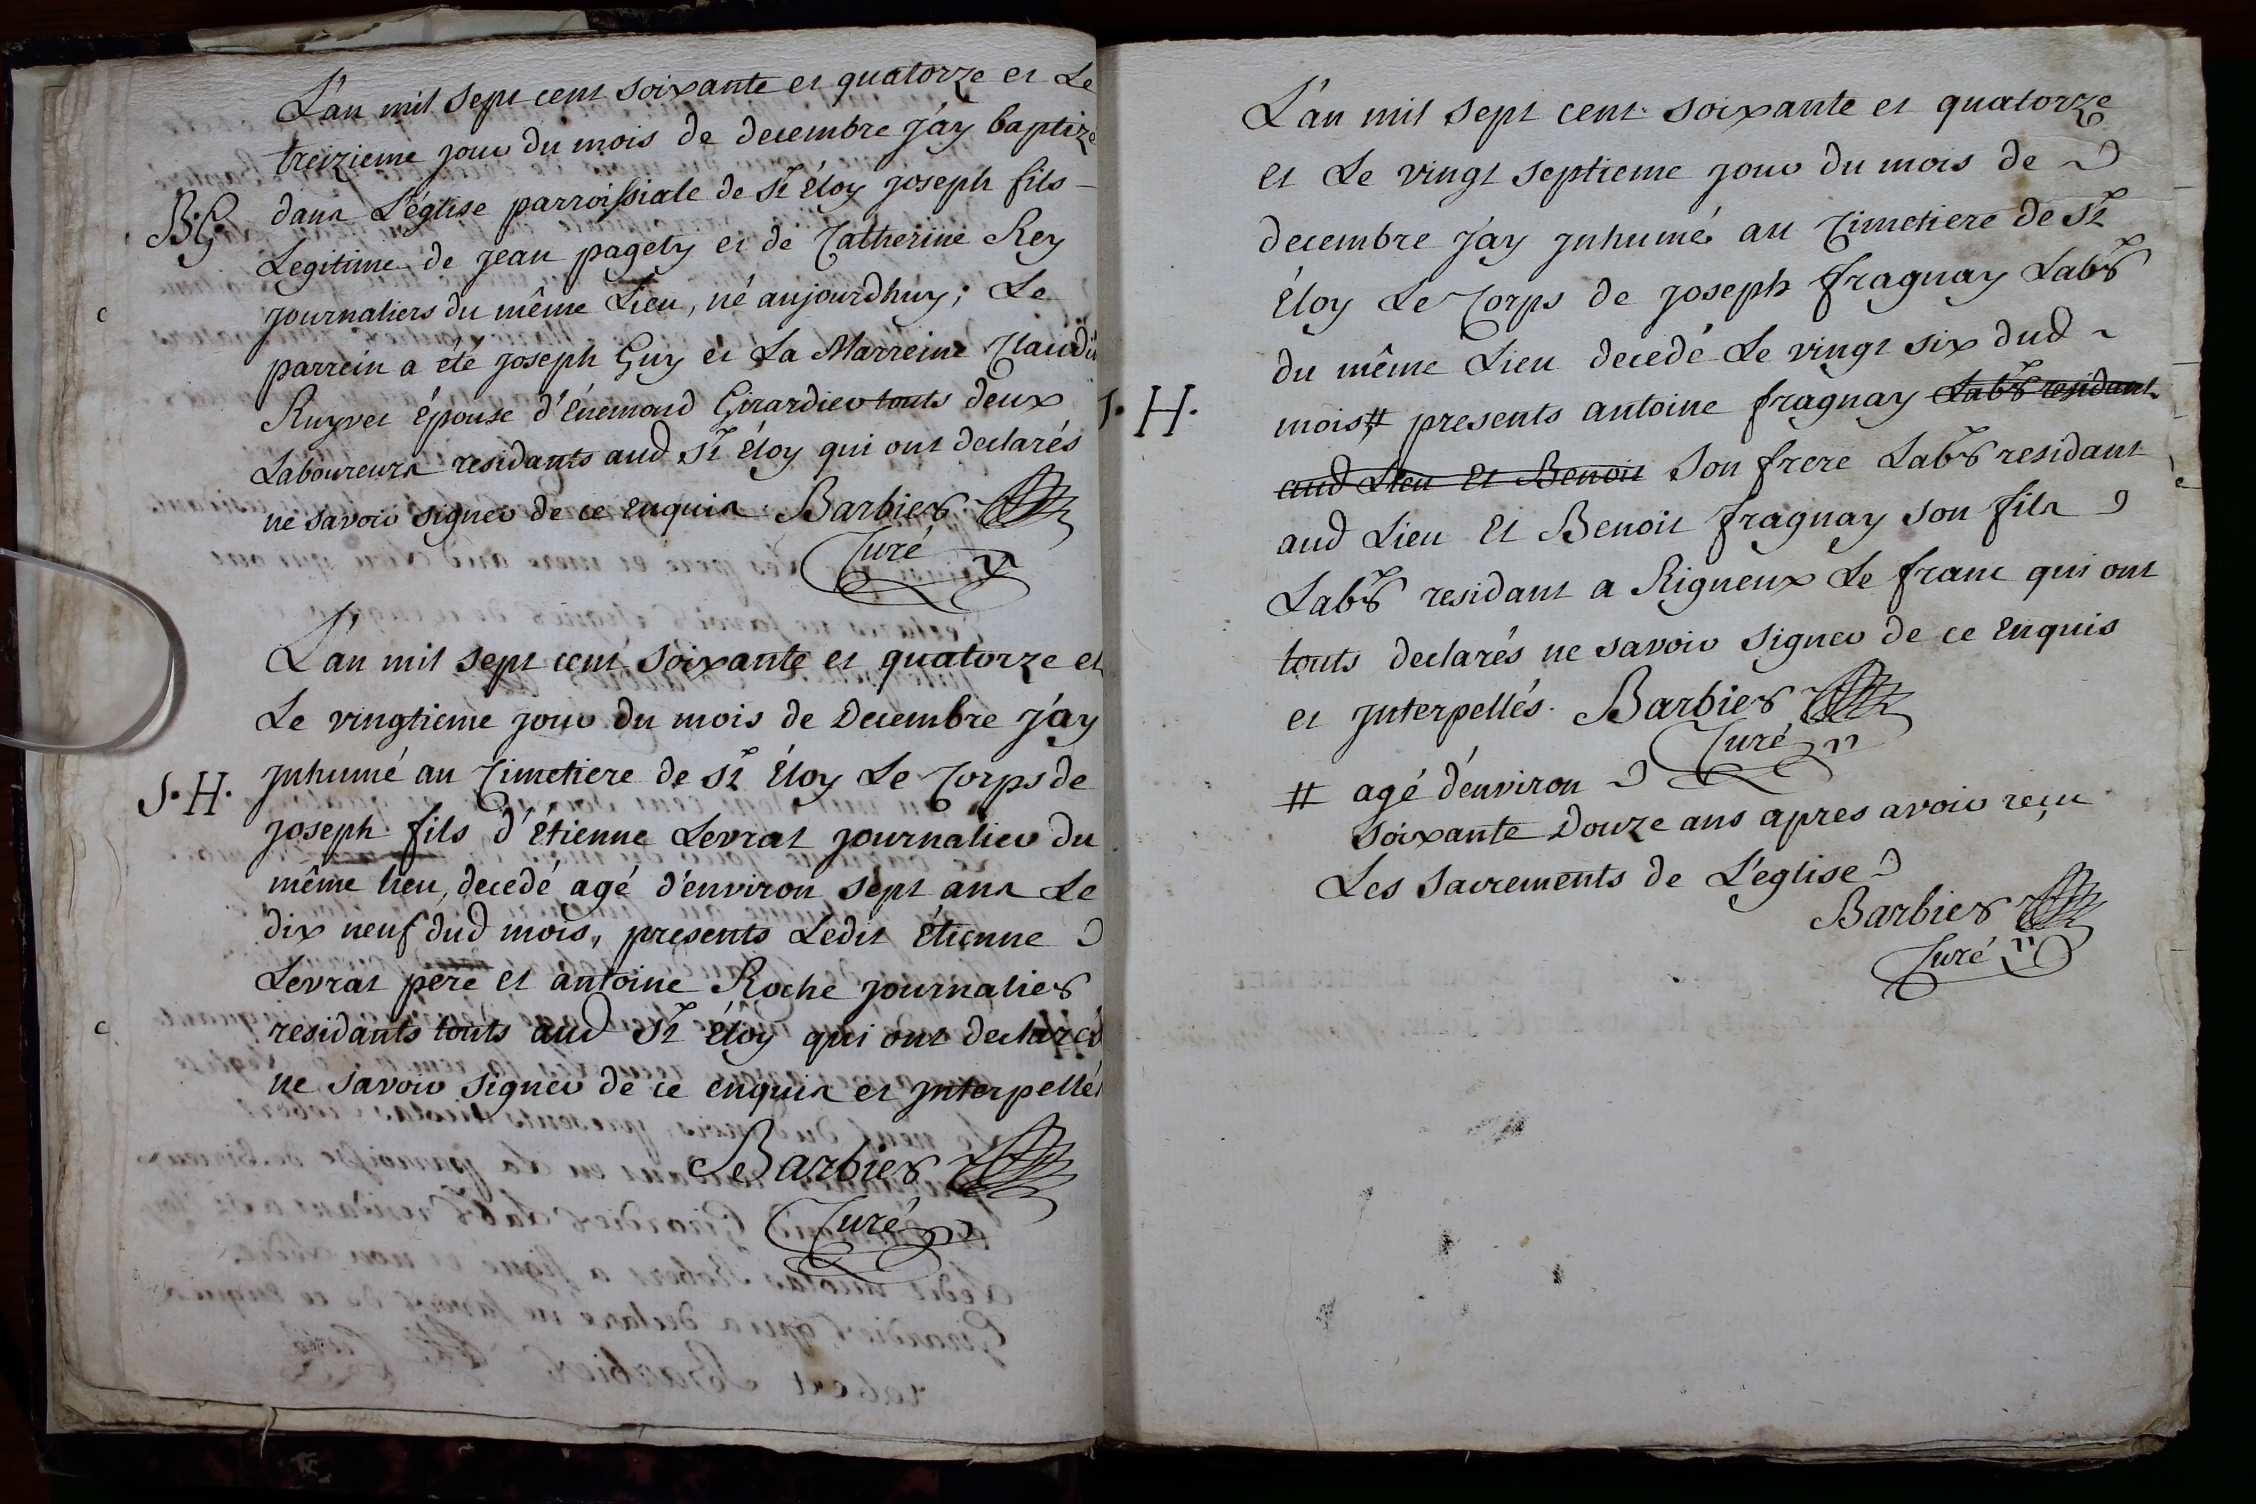 L'an mil sept cent soixante et quatorze et Le
treizieme jour du mois de decembre j'ay baptizé
B. G. dans L'église parroissiale de St Éloy joseph fils
Legitime de jean pagety et de Catherine Rey
journaliers du même Lieu, né aujourdhuy; Le
parrein a été joseph Guy et La Marreine Claudi
Ruyvet épouse d'Énemond Girardier touts deux
Laboureurs residants aud St Éloy qui ont declarés
ne savoir signer de ce enquis Barbier
Curé
L'an mil sept cent soixante et quatorze et
Le vingtieme jour du mois de Decembre j'ay
S. H. jnhumé au Cimetiere de St Éloy Le Corps de
joseph fils d'Étienne Levrat journalier du
même lieu, decedé agé d'environ sept ans Le
dix neuf dud mois, presents Ledit Étienne
Levrat pere et antoine Roche journalier
residants touts aud St Éloy qui ont declarés
ne savoir signer de ce enquis et jnterpellés
Barbier
Curé
L'an mil sept cent soixante et quatorze
et Le vingt septieme jour du mois de
decembre j'ay jnhumé au Cimetiere de St
Éloy Le Corps de joseph fragnay Labr
du même Lieu decedé Le vingt six dud
S. H. mois # presents antoine fragnay Labr residant
aud Lieu Et Benoit son frere Labr residant
aud Lieu Et Benoit fragnay son fils
Labr residant a Rigneux Le franc qui ont
touts declarés ne savoir signer de ce Enquis
et jnterpellés. Barbier
Curé
# agé d'environ
soixante Douze ans apres avoir reçu
Les sacrements de L'église
Barbier
Curé